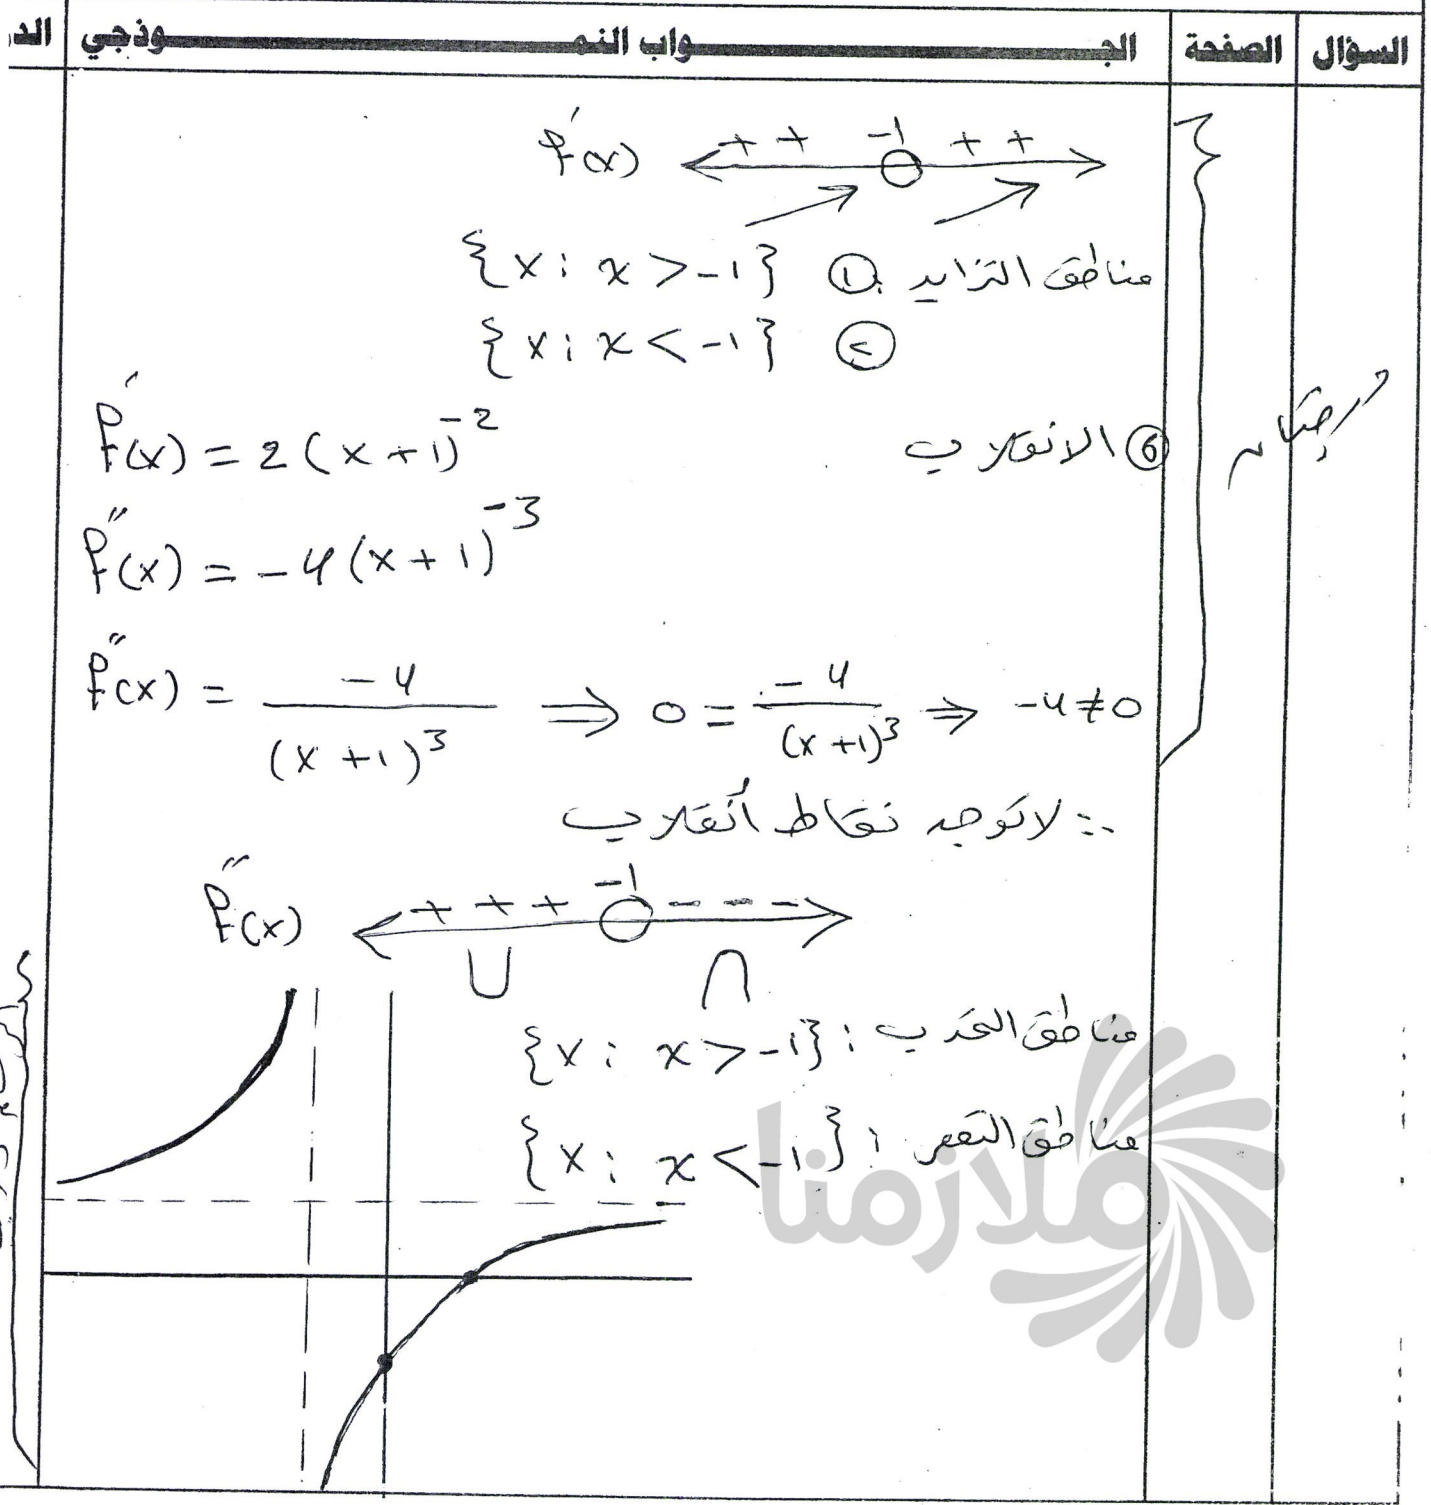 السؤال الصفحة الجـــواب النمـــوذجي الد
f'(x) + + -1 + +
مناطق التزايد ① {x : x > -1}
② {x : x < -1}
⑥ الانقلاب f'(x) = 2(x+1)^-2
درجتان
f''(x) = -4(x+1)^-3
f''(x) = -4/(x+1)^3 ⇒ 0 = -4/(x+1)^3 ⇒ -4 ≠ 0
∴ لا توجد نقاط أنقلاب
f''(x) + + + -1 - - -
∪ ∩
مناطق التحدب : {x : x > -1}
مناطق التقعر : {x : x < -1}
ملازمنا